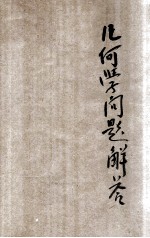 几何学问题解答